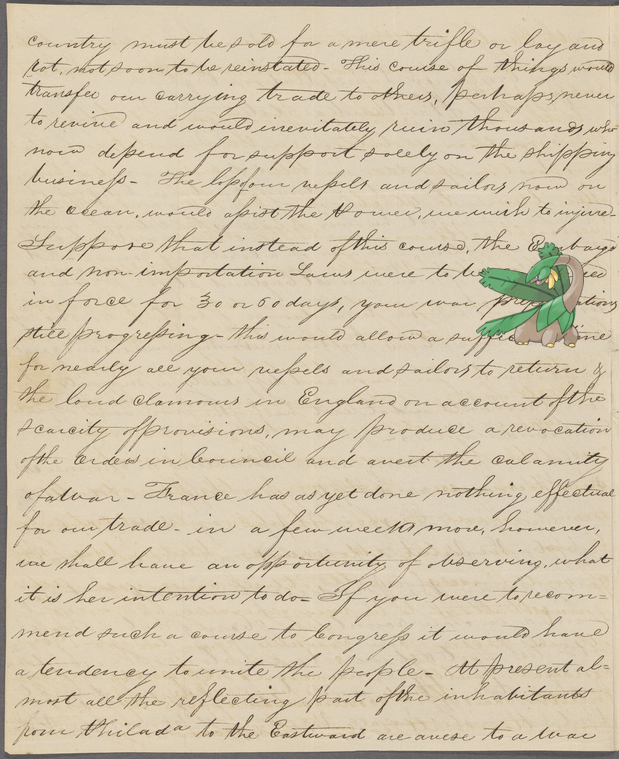 country must be sold for a mere trifle or lay and
rot, not soon to be reinstated - This course of things would
transfer our carrying trade to others, perhaps never
to revive and would inevitably ruin thousands who
now depend for support solely on the shipping
business - The loss of our vessels and sailors now on
the ocean, would assist the Power, we wish to injure -
Suppose that instead of this course, the Embargo
and non-importation Laws were to be
in force for 30 or 60 days, your war
still progressing - this would allow a
for nearly all your vessels and sailors to return &
the loud clamours in England on account of the
scarcity of provisions, may produce a revocation
of the orders in Council and avert the calamity
of a War - France has as yet done nothing effectual
for our trade - in a few weeks more, however,
we shall have an opportunity of observing, what
it is her intention to do = If you were to recom=
mend such a course to Congress it would have
a tendency to unite the people - At present al=
most all the reflecting part of the inhabitants
from Philada to the Eastward are averse to a War